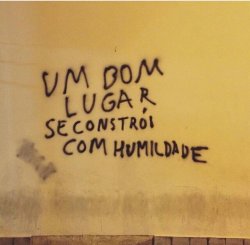 UM BOM
LUGAR
SE CONSTRÓI
COM HUMILDADE